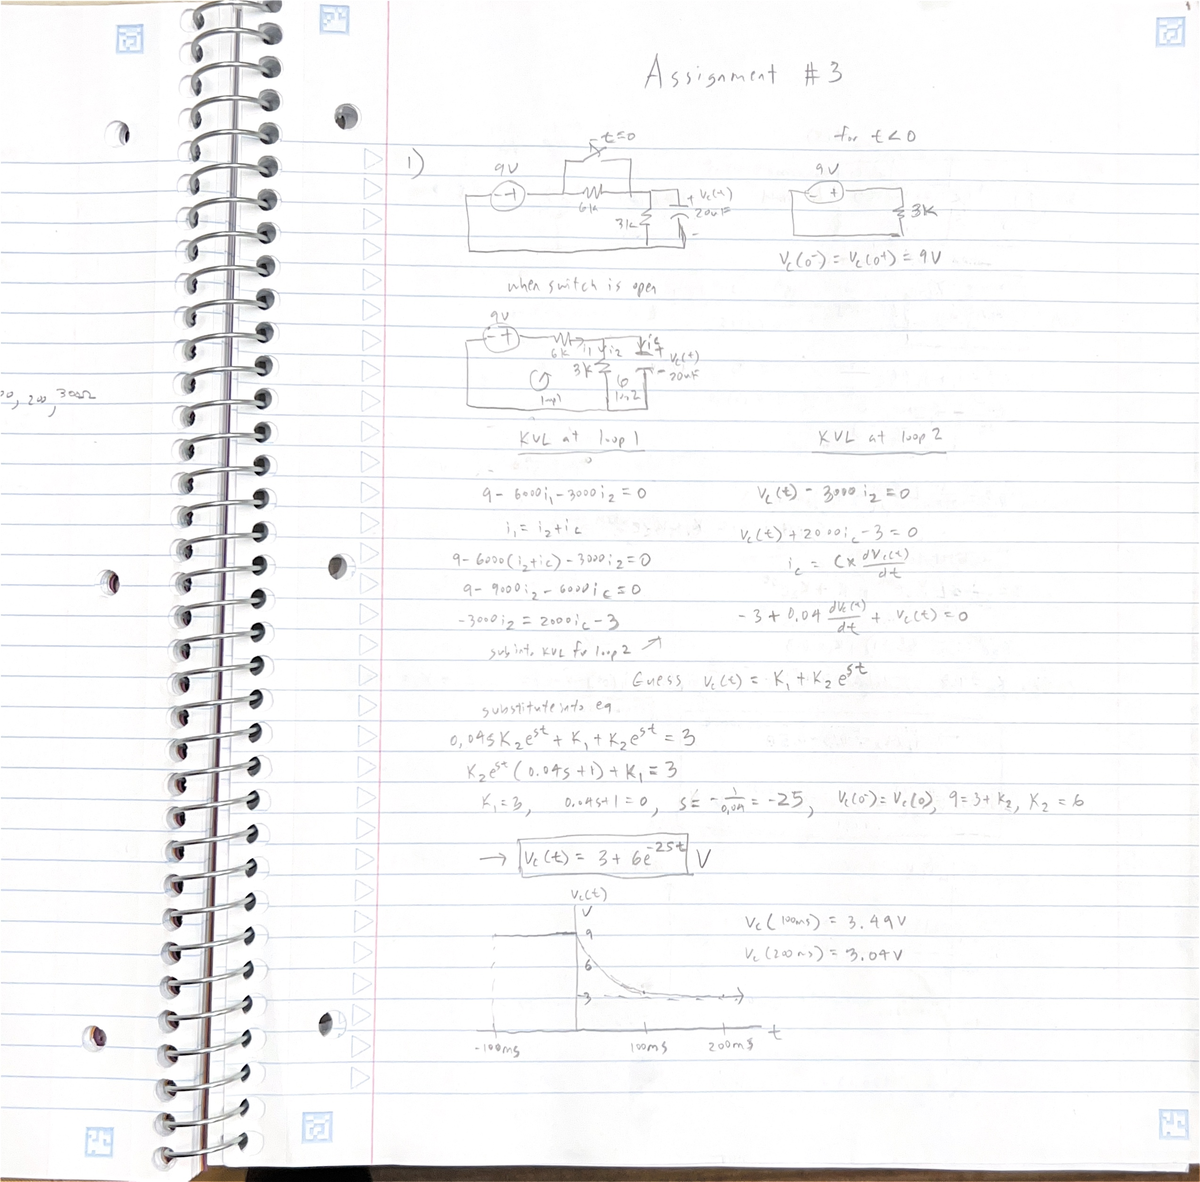 Assignment #3
1)
t=0
9V
- +
6k
3k
+ Vc(t)
20uF
-
for t<0
9V
- +
3K
Vc(0-) = Vc(0+) = 9V
when switch is open
9V
- +
6K
i1
i2
ic
3K
+
Vc(t)
-
20uF
loop1
loop2
00, 200, 300Ω
KVL at loop 1
9 - 6000i1 - 3000i2 = 0
i1 = i2 + ic
9 - 6000(i2+ic) - 3000i2 = 0
9 - 9000i2 - 6000ic = 0
-3000i2 = 2000ic - 3
sub into KVL for loop 2 ↗
KVL at loop 2
Vc(t) - 3000i2 = 0
Vc(t) + 2000ic - 3 = 0
ic = C x dVc(t)/dt
-3 + 0.04 dVc(t)/dt + Vc(t) = 0
Guess Vc(t) = K1 + K2e^st
substitute into eq
0.04sK2e^st + K1 + K2e^st = 3
K2e^st (0.04s+1) + K1 = 3
K1=3, 0.04s+1=0, s= -1/0.04 = -25, Vc(0-)=Vc(0), 9=3+K2, K2=6
→ Vc(t) = 3 + 6e^-25t V
Vc(t)
V
9
6
3
-100ms
100ms
200ms
t
Vc(100ms) = 3.49V
Vc(200ms) = 3.04V